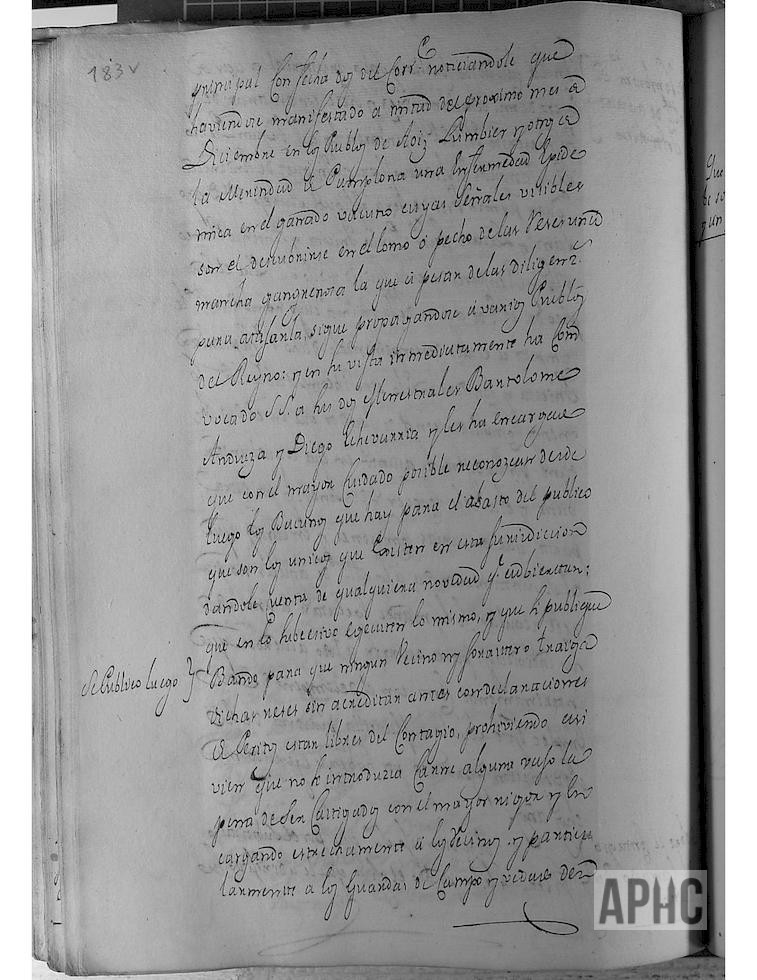 183v
principal con fecha dos del Corr.te noticiandole que
haviendose manifestado a mitad del proximo mes de
Diciembre en los Pueblos de Aoiz Lumbier y otros de
la Merindad de Pamplona una Enfermedad Epide
mica en el ganado vacuno cuyas señales visibles
son el descubrirse en el lomo o pecho de las reses una
mancha gangrenosa la que a pesar de las diligen.s
para atajarla, sigue propagandose a varios Pueblos
del Reyno: y en su vista inmediatamente ha Com
vocado SS.a a los dos Herrestrales Bartolome
Andueza y Diego Echevarria y les ha encargado
que con el mayor Cuidado posible reconozcan desde
luego los Bacunos que hay para el abasto del publico
que son los unicos que Existen en esta Jurisdicion
dandole quenta de qualquiera novedad q.e adbiertan;
que en lo subcesivo egecuten lo mismo, y que se publique
Bando para que ningun Vecino ni forastero traiga
dichas reses sin acreditar antes con declaraciones
de Peritos estan libres del Contagio, prohiviendo asi
vien que no se introduzca Carne alguna vajo la
pena de ser Castigados con el mayor rigor y En
cargando estrechamente a los Vecinos y particu
larmente a los Guardas de Campo y
Se Publico luego
APHC